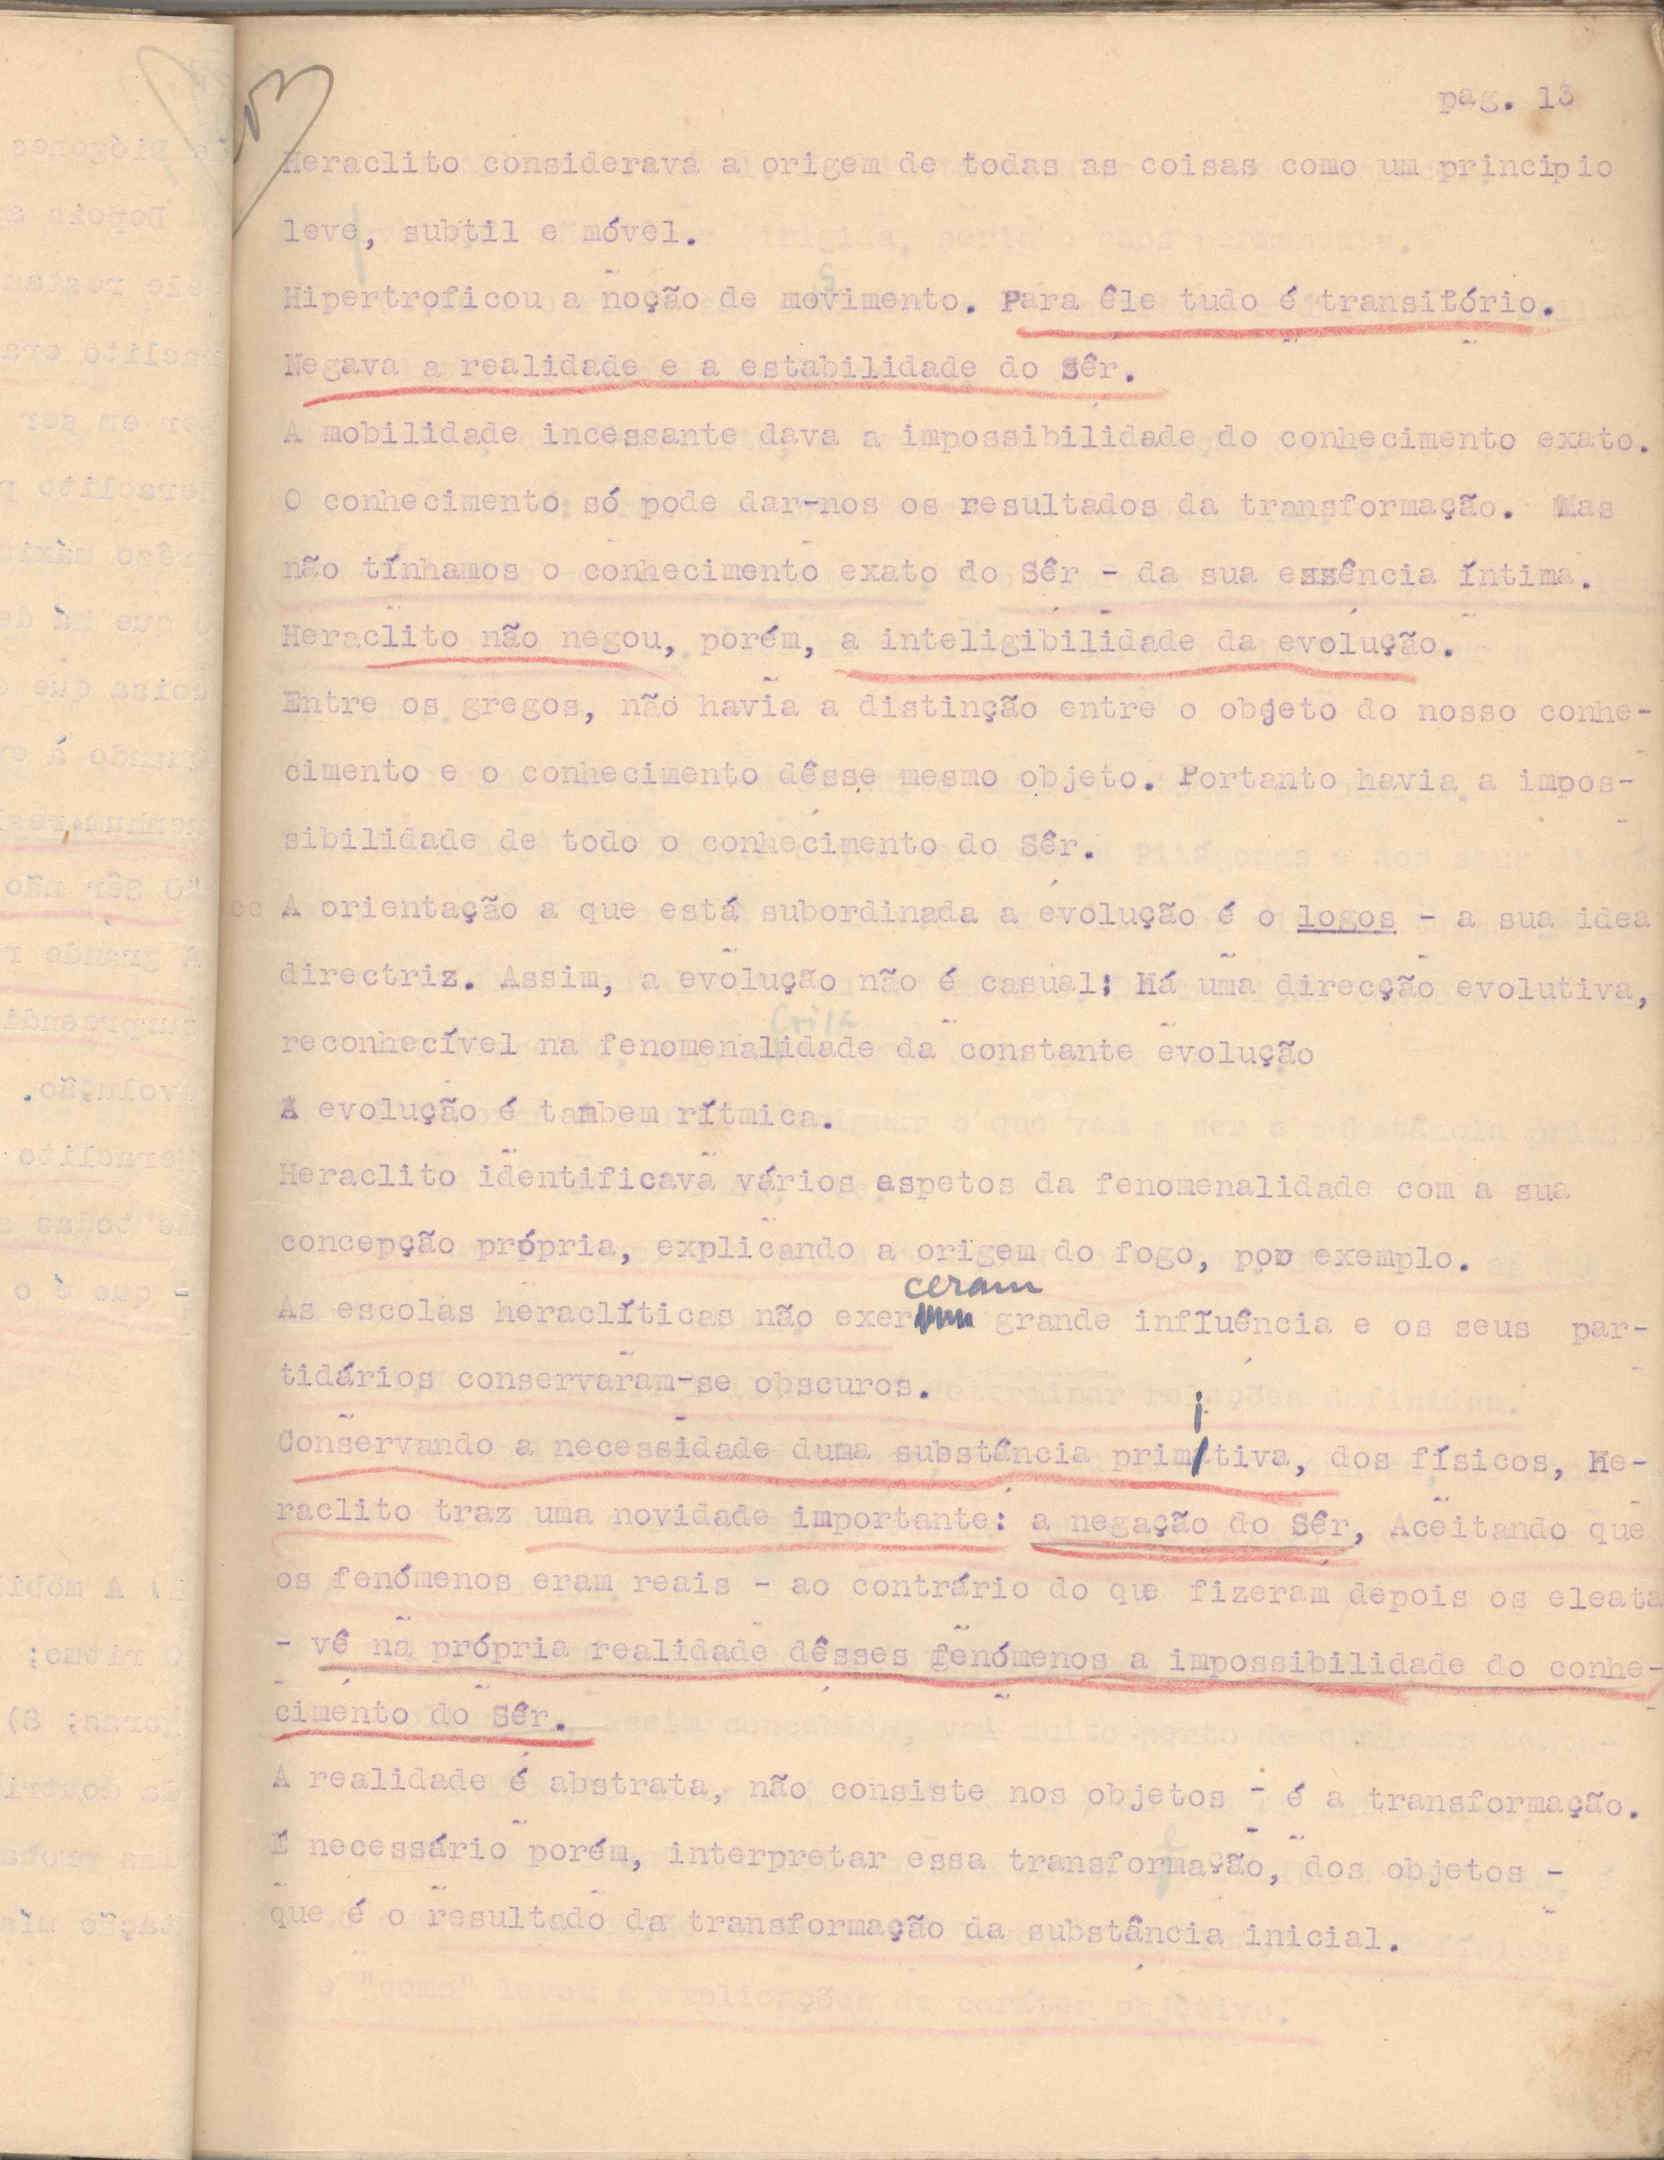 pag. 13
Heraclito considerava a origem de todas as coisas como um principio
leve, subtil e móvel.
Hipertroficou a noção de movimento. Para êle tudo é transitório.
Negava a realidade e a estabilidade do Sêr.
A mobilidade incessante dava a impossibilidade do conhecimento exato.
O conhecimento só pode dar-nos os resultados da transformação. Mas
não tínhamos o conhecimento exato do Sêr - da sua essência íntima.
Heraclito não negou, porém, a inteligibilidade da evolução.
Entre os gregos, não havia a distinção entre o objeto do nosso conhe-
cimento e o conhecimento dêsse mesmo objeto. Portanto havia a impos-
sibilidade de todo o conhecimento do Sêr.
A orientação a que está subordinada a evolução é o logos - a sua idea
directriz. Assim, a evolução não é casual; Há uma direcção evolutiva,
reconhecível na fenomenalidade da constante evolução
A evolução é tambem rítmica.
Heraclito identificava vários aspetos da fenomenalidade com a sua
concepção própria, explicando a origem do fogo, por exemplo.
As escolas heraclíticas não exerceram grande influência e os seus par-
tidários conservaram-se obscuros.
Conservando a necessidade duma substância primitiva, dos físicos, He-
raclito traz uma novidade importante: a negação do Sêr, Aceitando que
os fenómenos eram reais - ao contrário do que fizeram depois os eleata
- vê na própria realidade dêsses fenómenos a impossibilidade do conhe-
cimento do Sêr.
A realidade é abstrata, não consiste nos objetos - é a transformação.
É necessário porém, interpretar essa transformação, dos objetos -
que é o resultado da transformação da substância inicial.